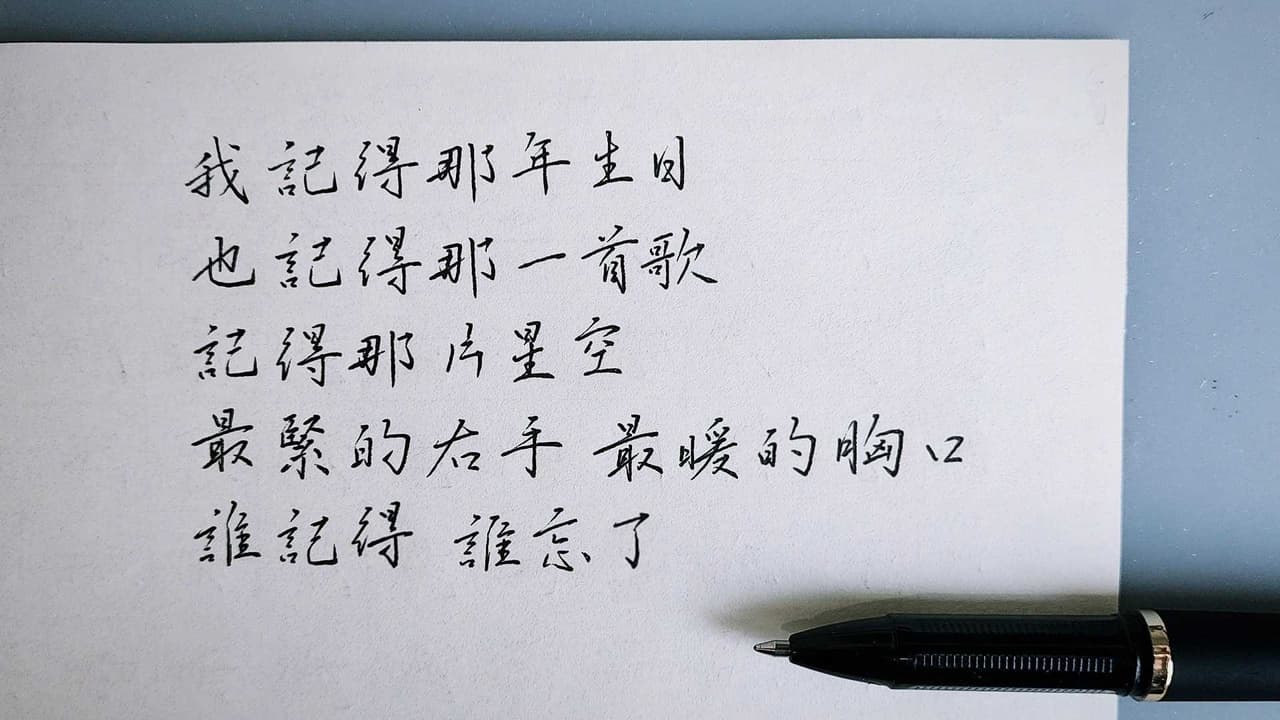 我記得那年生日
也記得那一首歌
記得那片星空
最緊的右手 最暖的胸口
誰記得 誰忘了